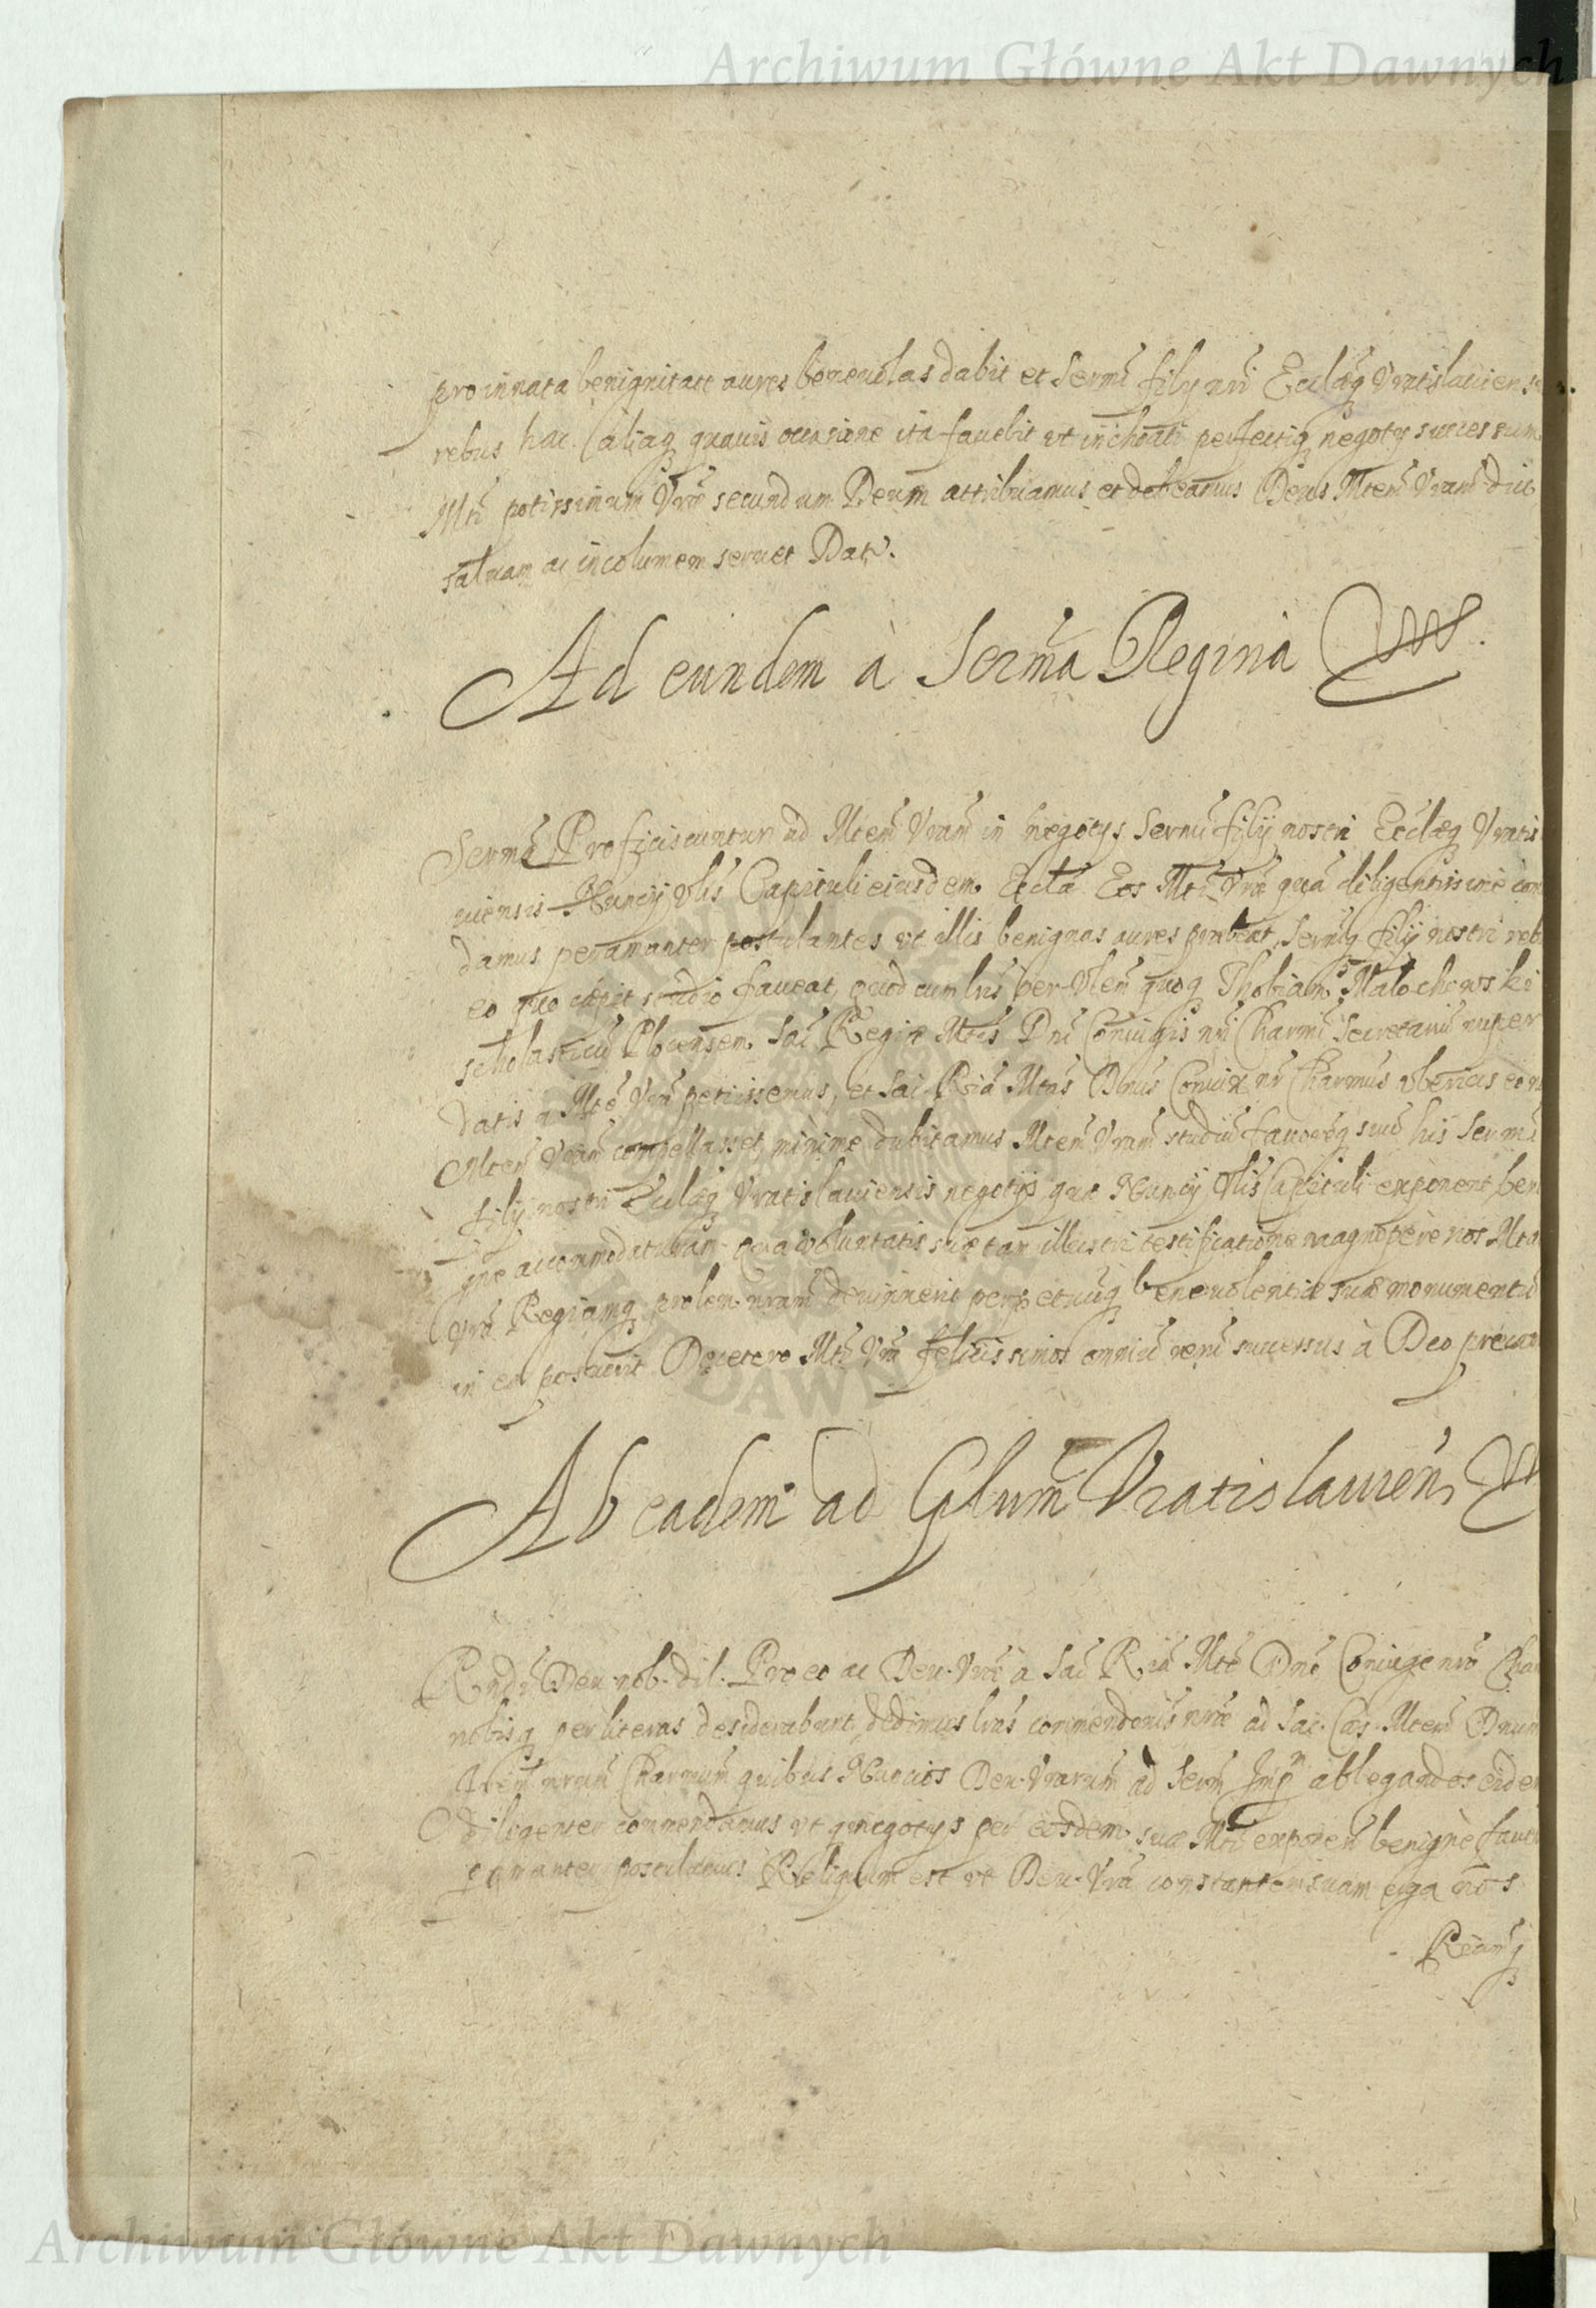 Archiwum Główne Akt Dawnych
pro innata benignitate aures beneuolas dabit et Sermi filij nri Ecclæq Vratislauiens
rebus hac aliaq quauis occasione ita fauebit vt inchoati perfectiq negotij successum
Mti potissimum Vræ secundum Deum attribuamus et debeamus Deus Mtem Vram diu
saluam ac incolumem seruet Dat.
Ad eundem à Serma Regina
Serme Proficiscuntur ad Mtem Vram in negotijs Sermi filij nostri Ecclæq Vratis
uiensis Nuncij Vlis Capituli eiusdem Eccla Eos Mti Vræ qua diligentissime com
damus peramanter postulantes vt illis benignas aures præbeat, Sermiq filij nostri reb
eo quo cæpit studio faueat, quod cum lris per Vlem quoq Thobiam Malochowski
scholasticu Plocensem Sac Regiæ Mtis Dni Coniugis nri Charmi Secretariu nuper
datis a Mte Vra petiissemus, et Sac Ria Mtas Dnus Coniux nr Charmus vberius eo
Mtem Vram compellasset minime dubitamus Mtem Vram studiu fauoreq suu his Sermi
filij nostri Ecclæq Vratislauiensis negotijs quæ Nuncij Vlis Capituli exponent ben
gne accommodaturam Qua voluntatis suæ tam illustri testificatione magnopere nos Mtas
Vra Regiamq prolem nram deuinxerit perpetuuq beneuolentiæ suæ monumentu
in ea posuerit De cetero Mti Vræ felicissimos omniu reru successus à Deo precam
Ab eadem ad Cplum Vratislauien
Rndi Deu. nob. dil. Pro eo ac Deu. Vræ à Sac Ria Mte Dno Coniuge nro Char
nobisq per literas desiderabant, dedimus lras commendonis nræ ad Sac. Cæs. Mtem Dnum
frem nrum Charmum quibus Nuncios Deu. Vrarum ad Serm Imp ablegandos eidem
diligenter commendamus vt q negotijs per eosdem suæ Mti exponen benigne faueat
peramanter postulamus Reliquum est vt Deu. Vræ constantem suam erga nos
Reiamq
Archiwum Główne Akt Dawnych